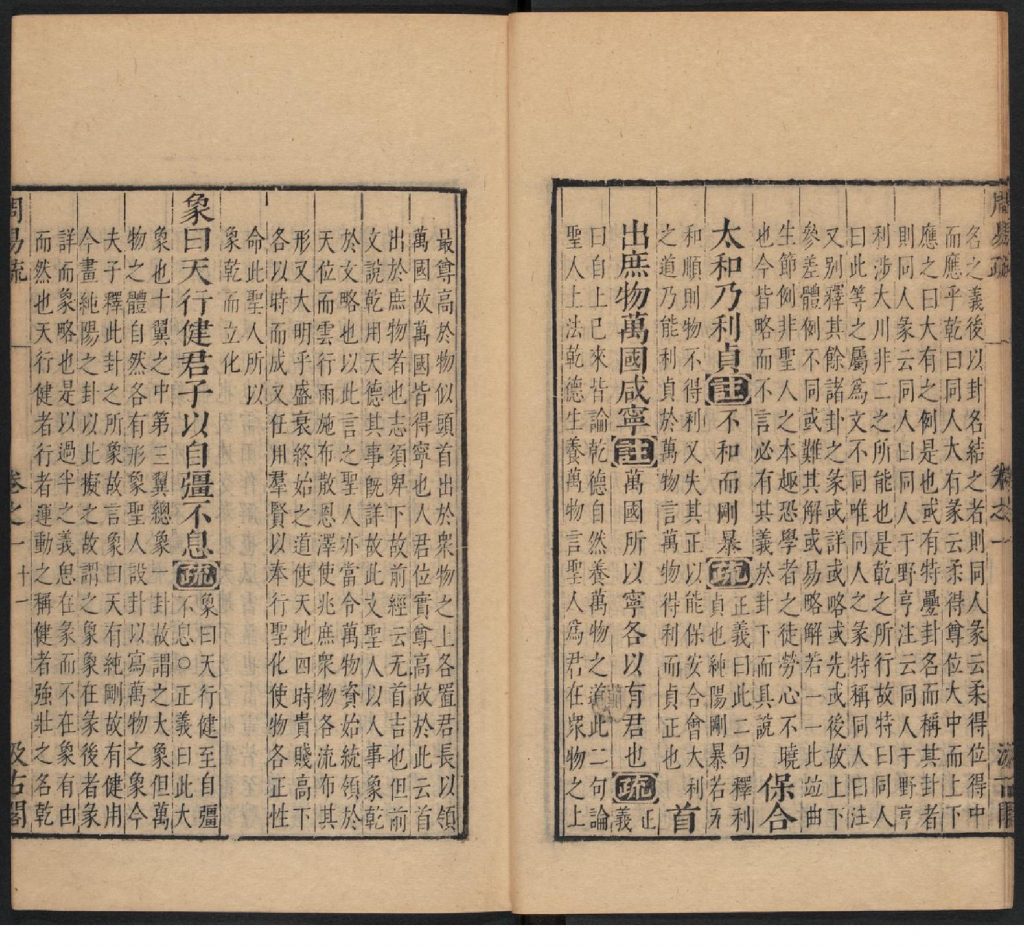 周易疏 卷之一 汲古閣
名之義後以卦名結之者則同人彖云柔得位得中
而應乎乾曰同人大有彖云柔得尊位大中而上下
應之曰大有之例是也或有特疊卦名而稱其卦者
則同人彖云同人曰同人于野亨注云同人于野亨
利涉大川非二之所能也是乾之所行故特曰同人
曰此等之屬爲文不同唯同人之彖特稱同人曰注
又別釋其餘諸卦之彖或詳或略或先或後故上下
參差體例不同或難其解或易略解若一一比並曲
生節例非聖人之本趣恐學者之徒勞心不曉
也今皆略而不言必有其義於卦下而具說
保合
太和乃利貞註不和而剛暴疏正義曰此二句釋利
貞也純陽剛暴若无
和順則物不得利又失其正以能保安合會大利
之道乃能利貞於萬物言萬物得利而貞正也
首
出庶物萬國咸寧註萬國所以寧各以有君也疏正
義
曰自上已來皆論乾德自然養萬物之道此二句論
聖人上法乾德生養萬物言聖人爲君在衆物之上
最尊高於物似頭首出於衆物之上各置君長以領
萬國故萬國皆得寧也人君位實尊高故於此云首
出於庶物者也志須卑下故前經云无首吉也但前
文說乾用天德其事既詳故此文聖人以人事象乾
於文略也以此言之聖人亦當令萬物資始統領於
天位而雲行雨施布散恩澤使兆庶衆物各流布其
形又大明乎盛衰終始之道使天地四時貴賤高下
各以時而成又任用羣賢以奉行聖化使物各正性
命此聖人所以
象乾而立化
象曰天行健君子以自彊不息疏象曰天行健至自彊
不息○正義曰此大
象也十翼之中第三翼總象一卦故謂之大象但萬
物之體自然各有形象聖人設卦以寫萬物之象今
夫子釋此卦之所象故言象曰天有純剛故有健用
今畫純陽之卦以比擬之故謂之象象在彖後者彖
詳而象略也是以過半之義思在彖而不在象有由
而然也天行健者行者運動之稱健者強壯之名乾
周易疏 卷之一 十一 汲古閣